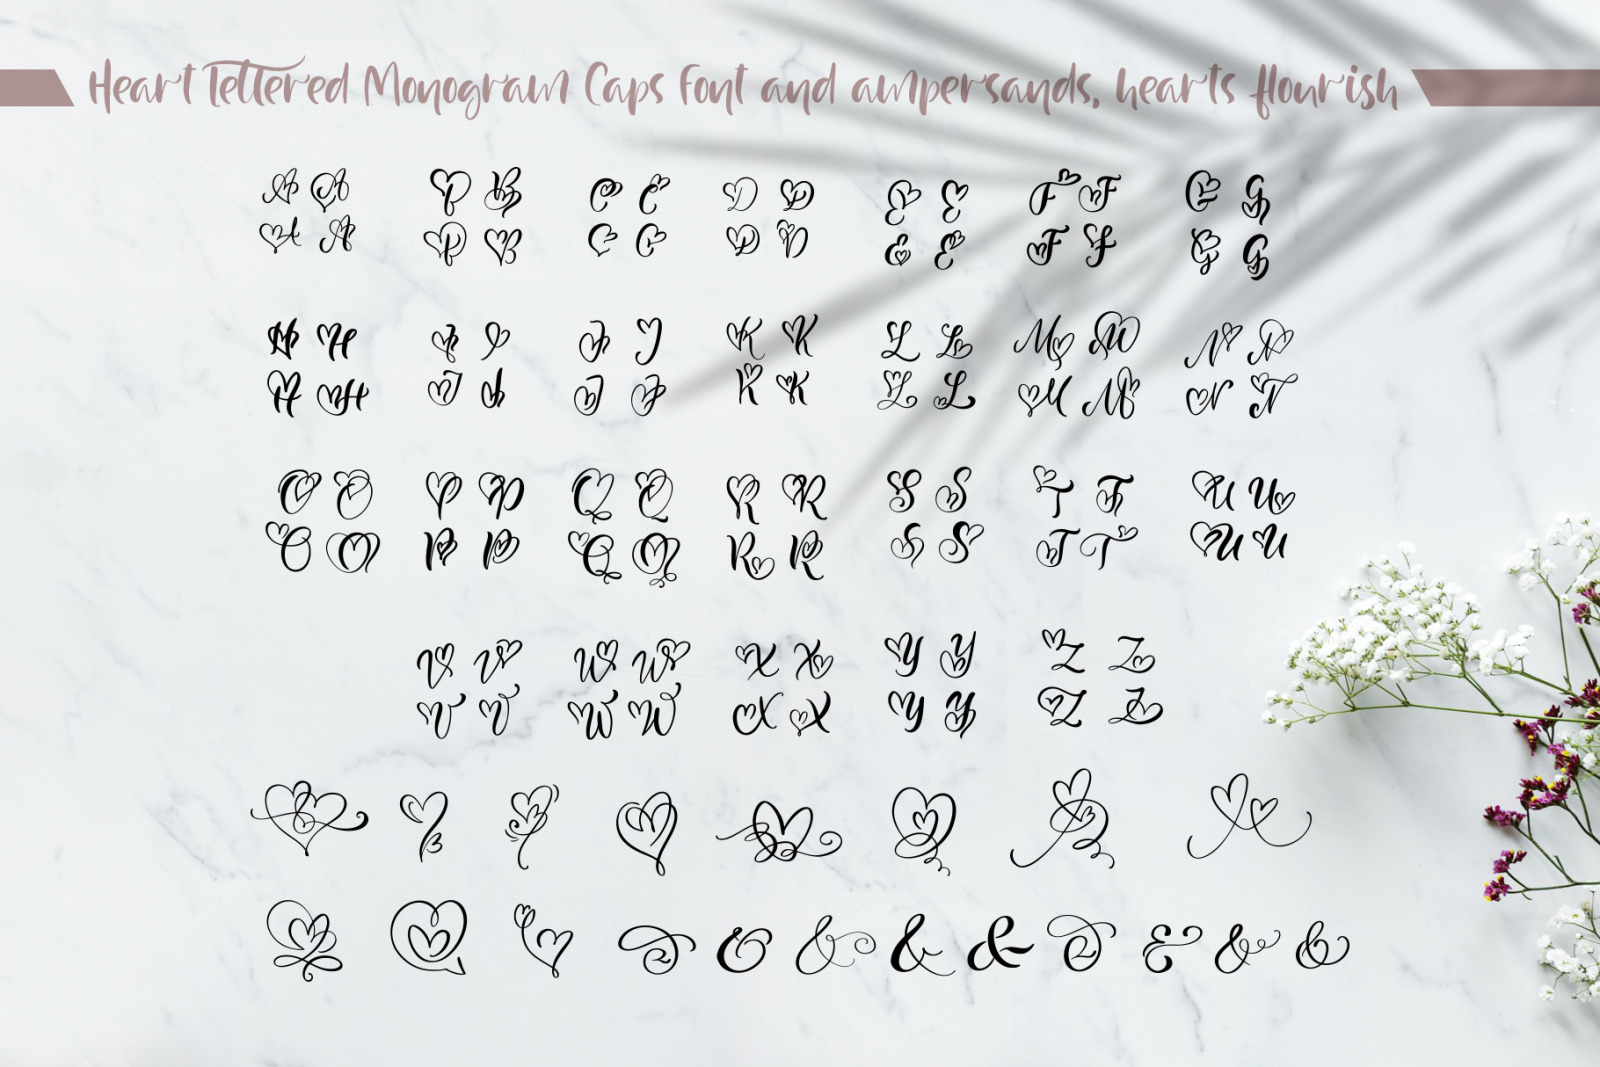 Heart Lettered Monogram Caps Font and ampersands, hearts flourish
A A B B C C D D E E F F G G
A A B B C C D D E E F F G G
H H I I J J K K L L M M N N
H H I I J J K K L L M M N N
O O P P Q Q R R S S T T U U
O O P P Q Q R R S S T T U U
V V W W X X Y Y Z Z
V V W W X X Y Y Z Z
& & & & & & & & &